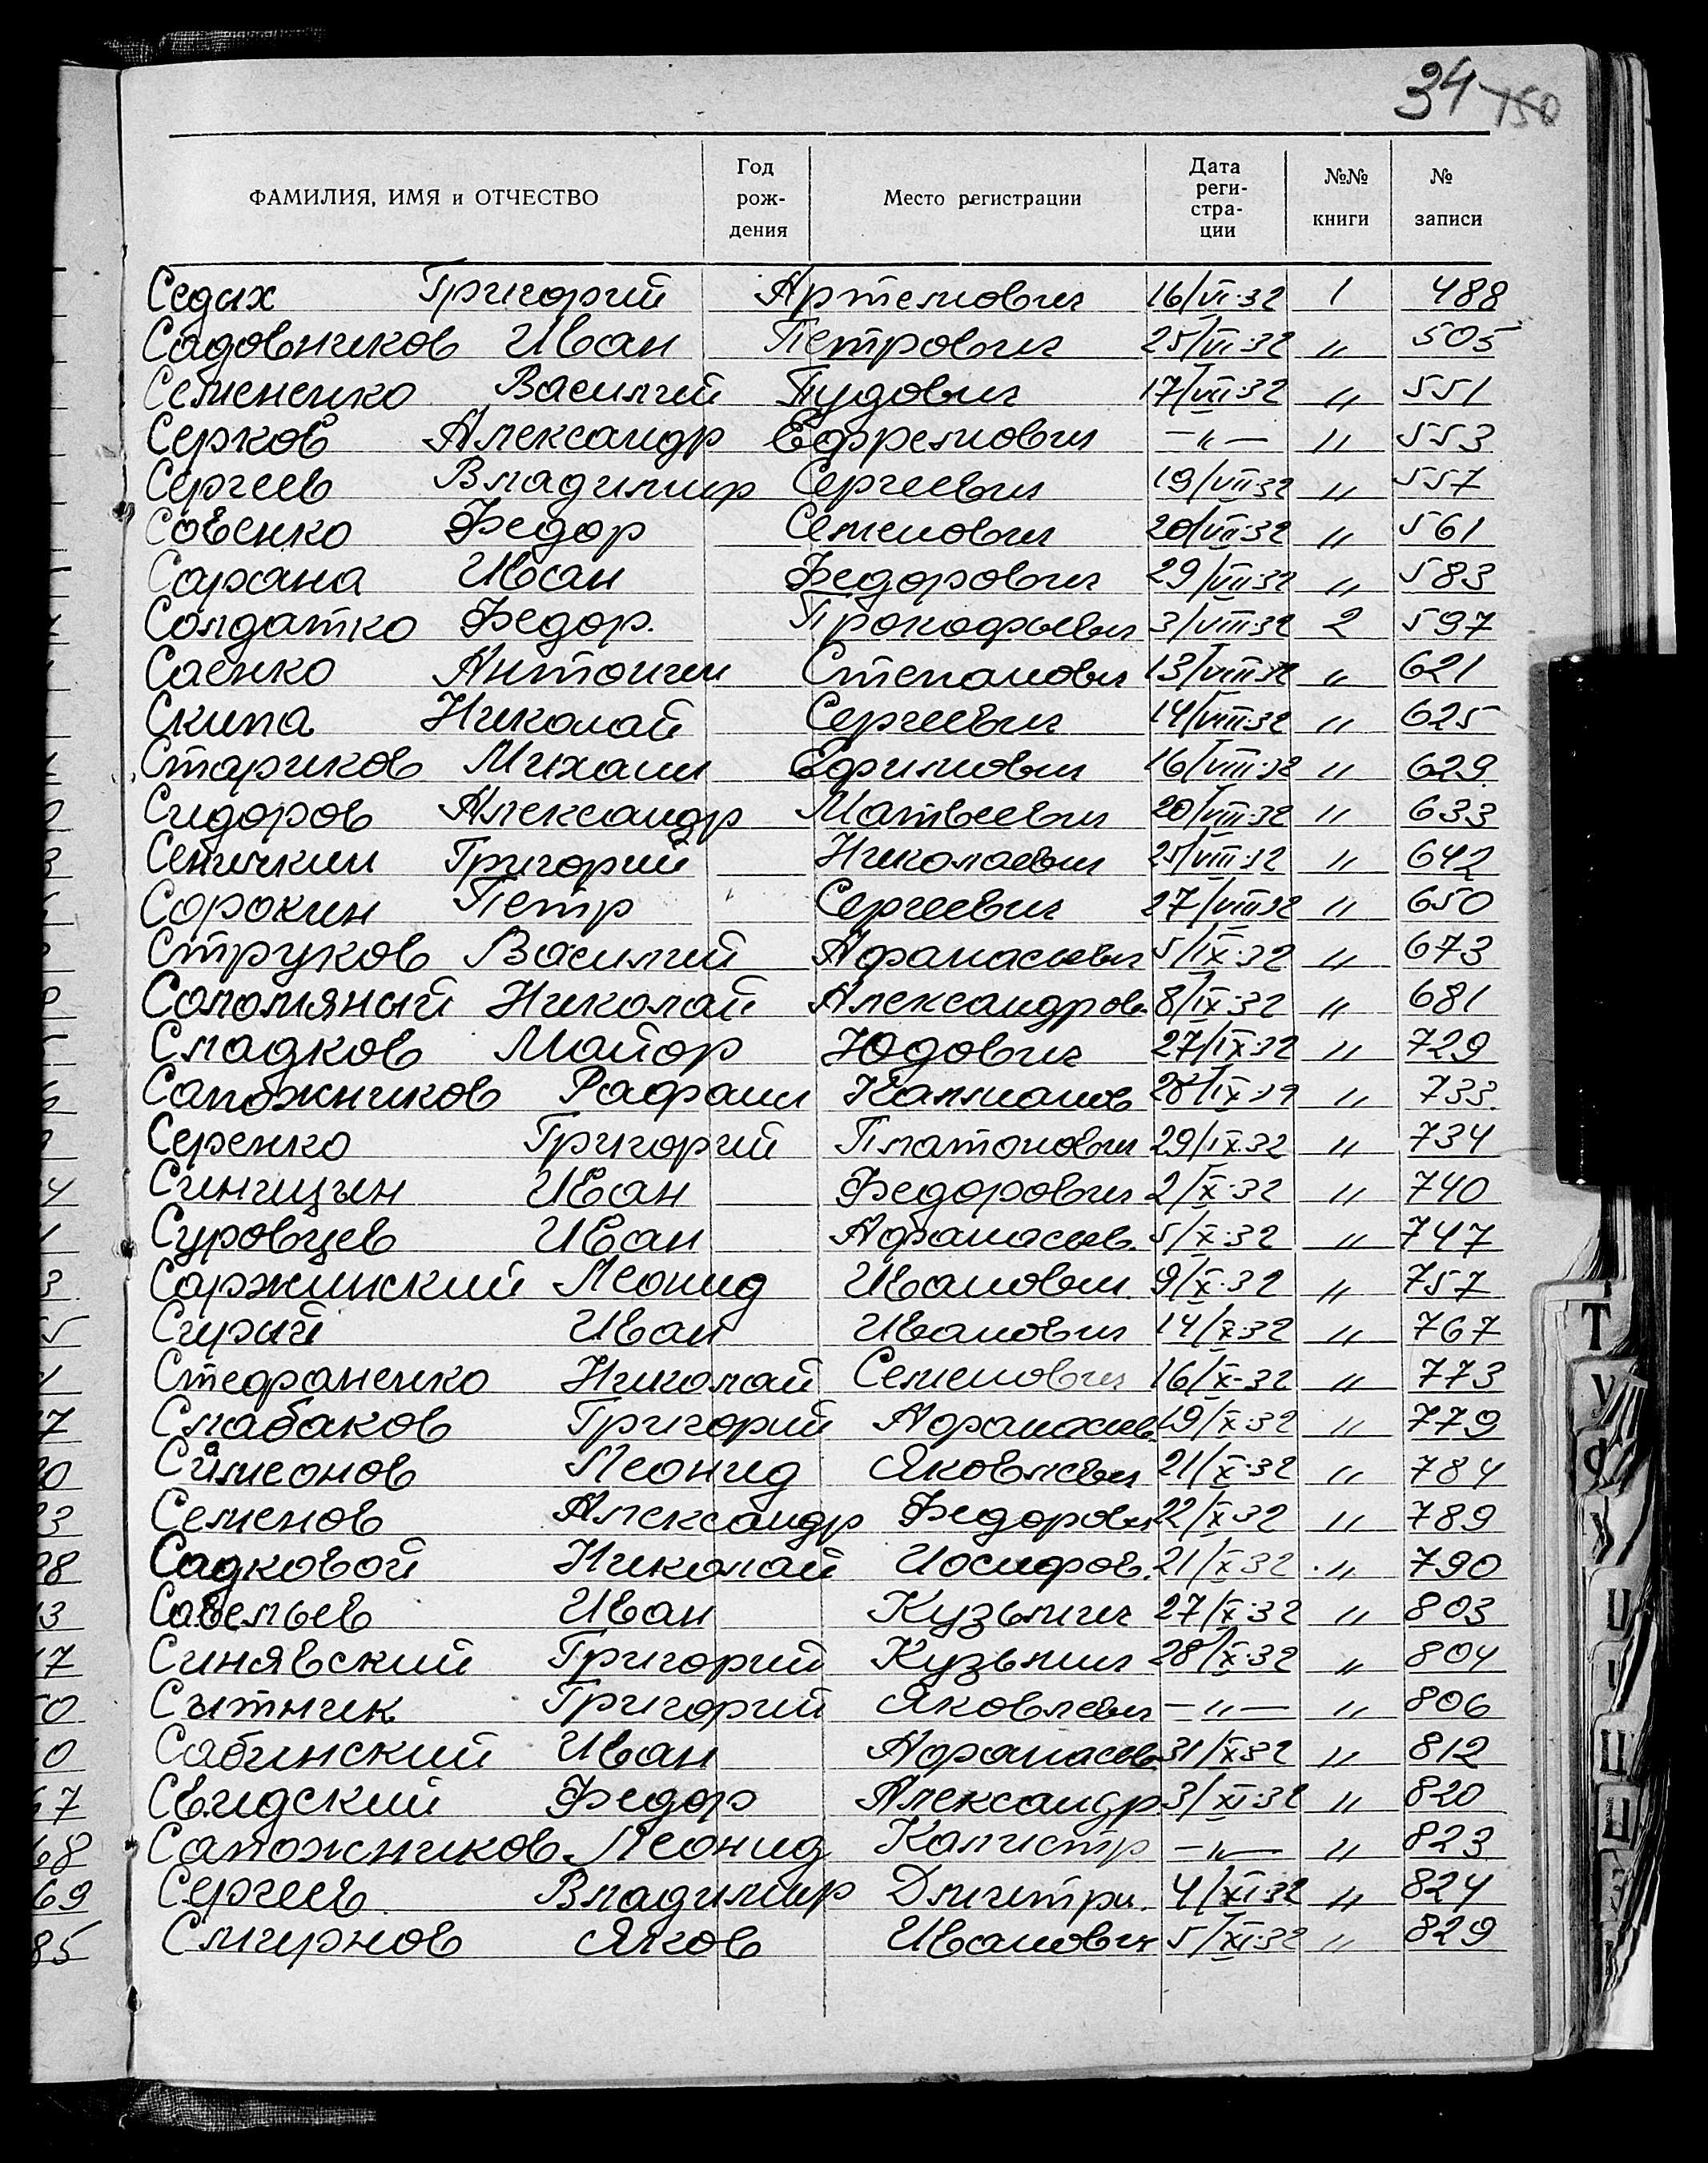 34 150
ФАМИЛИЯ, ИМЯ и ОТЧЕСТВО Год рож- дения Место регистрации Дата реги- стра- ции №№ книги № записи
Седых Григорий Артемович 16/VI.32 1 488
Садовников Иван Петрович 25/VI.32 " 505
Семененко Василий Пудович 17/VII.32 " 551
Серков Александр Ефремович —"— " 553
Сергеев Владимир Сергеевич 19/VII.32 " 557
Совенко Федор Семенович 20/VII.32 " 561
Сарана Иван Федорович 29/VII.32 " 583
Солдатко Федор. Прокофьевич 3/VIII.32 2 597
Саенко Антонин Степанович 13/VIII.32 " 621
Скипа Николай Сергеевич 14/VIII.32 " 625
Стариков Михаил Ефимович 16/VIII.32 " 629
Сидоров Александр Матвеевич 20/VIII.32 " 633
Сеничкин Григорий Николаевич 25/VIII.32 " 642
Сорокин Петр Сергеевич 27/VIII.32 " 650
Струков Василий Афанасьевич 5/IX.32 " 673
Соломяный Николай Александров. 8/IX.32 " 681
Сладков Майор Юдович 27/IX.32 " 729
Сапожников Рафаил Калманов 28/IX.32 " 733
Серенко Григорий Платонович 29/IX.32 " 734
Синицын Иван Федорович 2/X.32 " 740
Суровцев Иван Афанасьев. 5/X.32 " 747
Саржинский Леонид Иванович 9/X.32 " 757
Сирый Иван Иванович 14/X.32 " 767
Стефаненко Николай Семенович 16/X.32 " 773
Слабаков Григорий Афанасьев. 19/X.32 " 779
Симеонов Леонид Яковлевич 21/X.32 " 784
Семенов Александр Федорович 22/X.32 " 789
Садковой Николай Иосифов. 21/X.32 " 790
Савельев Иван Кузьмич 27/X.32 " 803
Синявский Григорий Кузьмич 28/X.32 " 804
Сытник Григорий Яковлевич —"— " 806
Сабинский Иван Афанасьев 31/X.32 " 812
Свидский Федор Александр 3/XI.32 " 820
Сапожников Леонид Калистр —"— " 823
Сергеев Владимир Дмитри. 4/XI.32 " 824
Смирнов Яков Иванович 5/XI.32 " 829
Т
У
Ф
Х